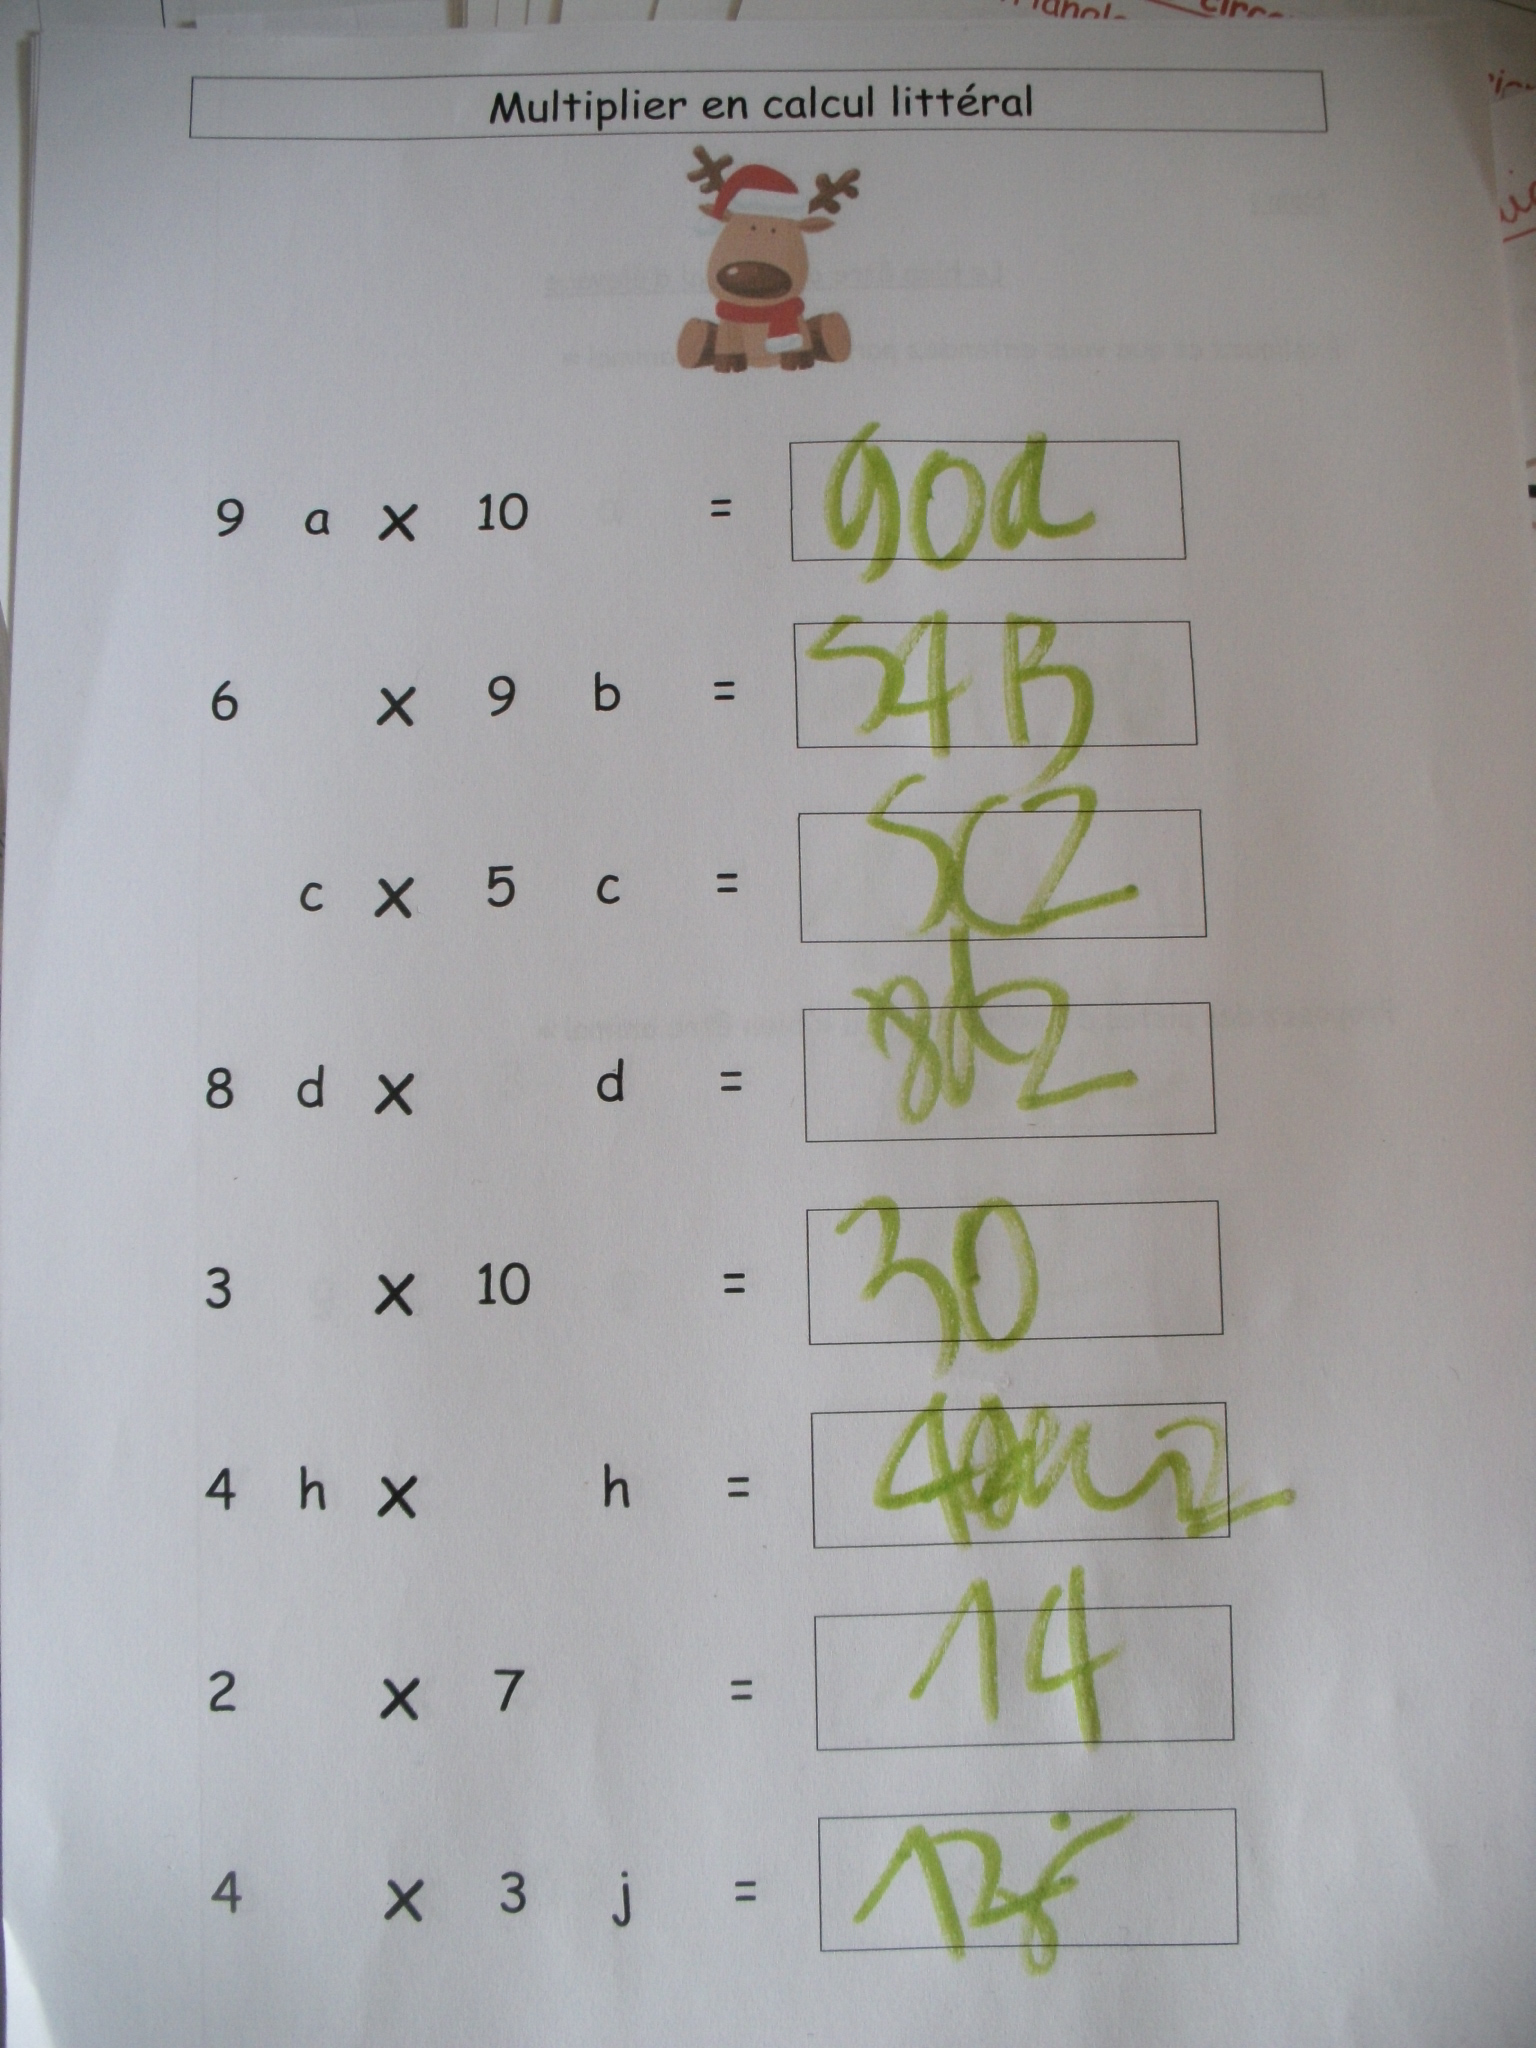 Multiplier en calcul littéral
9 a x 10 = 90a
6 x 9 b = 54 B
c x 5 c = 5c2
8 d x d = 8d2
3 x 10 = 30
4 h x h =
2 x 7 = 14
4 x 3 j = 12j